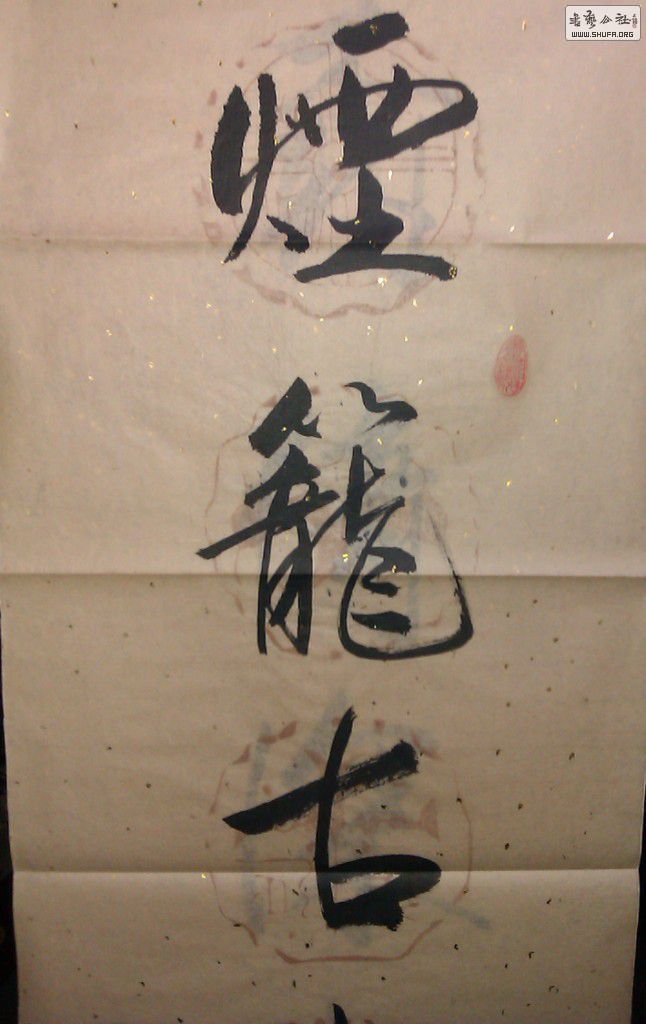 煙籠古
書藝公社
WWW.SHUFA.ORG